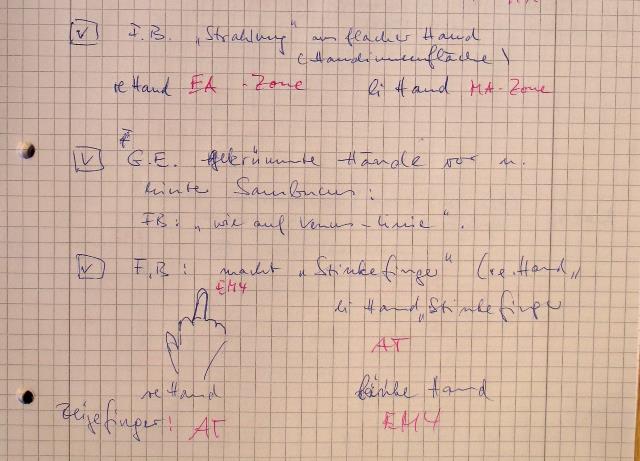 V F.B. „Strahlung" aus flacher Hand
(Handinnenfläche)
re Hand EA - Zone li Hand MA-Zone
V G.E. gekrümmte Hände vor u.
hinter Sambucus:
FB: „wie auf Venus-Linie".
V F.B: macht „Stinkefinger" (re. Hand„
EM4
li Hand „Stinkefinger
AT
re Hand linke Hand
Zeigefinger! AT EM4